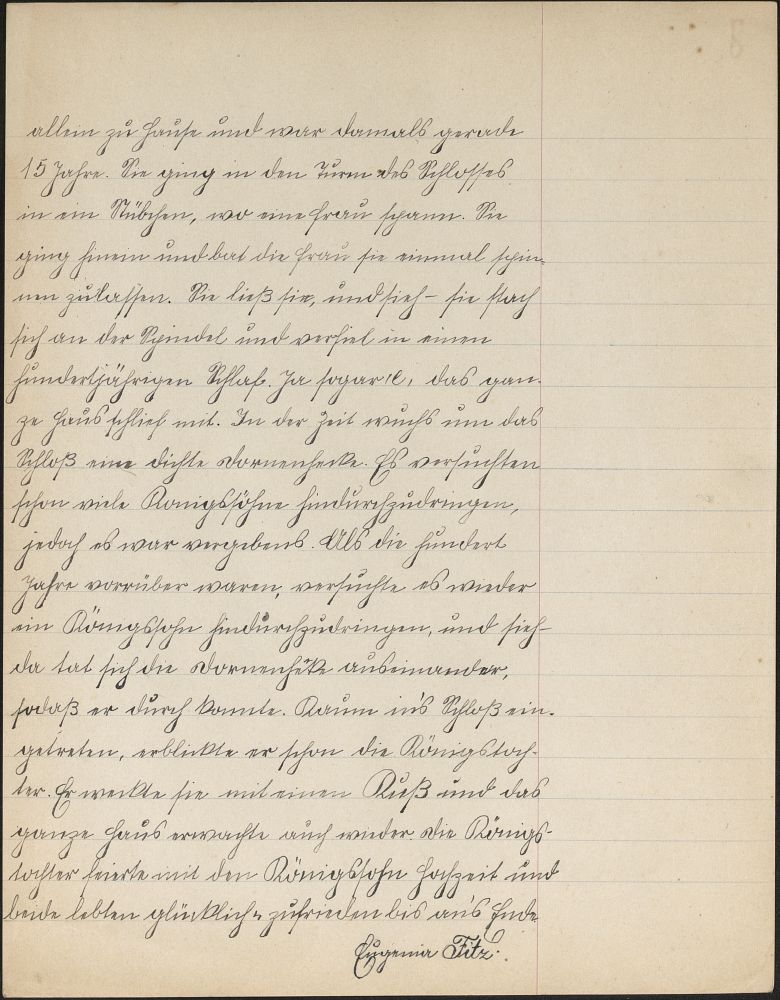 allein zu Hause und war damals gerade
15 Jahre. Sie ging in den Turm des Schlosses
in ein Stübchen, wo eine Frau spann. Sie
ging hinein und bat die Frau sie einmal spin-
nen zulassen. Sie ließ sie, und sieh - sie stach
sich an der Spindel und verfiel in einen
hundertjährigen Schlaf. Ja sogar das gan-
ze Haus schlief mit. In der Zeit wuchs um das
Schloß eine dichte Dornenhecke. Es versuchten
schon viele Konigssöhne hindurchzudringen,
jedoch es war vergebens. Als die hundert
Jahre vorrüber waren, versuchte es wieder
ein Königssohn hindurchzudringen, und sieh-
da tat sich die Dornenheke auseinander,
sodaß er durch konnte. Kaum in's Schloß ein-
getreten, erblickte er schon die Königstoch-
ter. Er weckte sie mit einen Kuß und das
ganze Haus erwachte auch wieder. Die Königs-
tochter feierte mit den Königssohn Hochzeit und
beide lebten glücklich u zufrieden bis an's Ende
Eugenia Fitz.